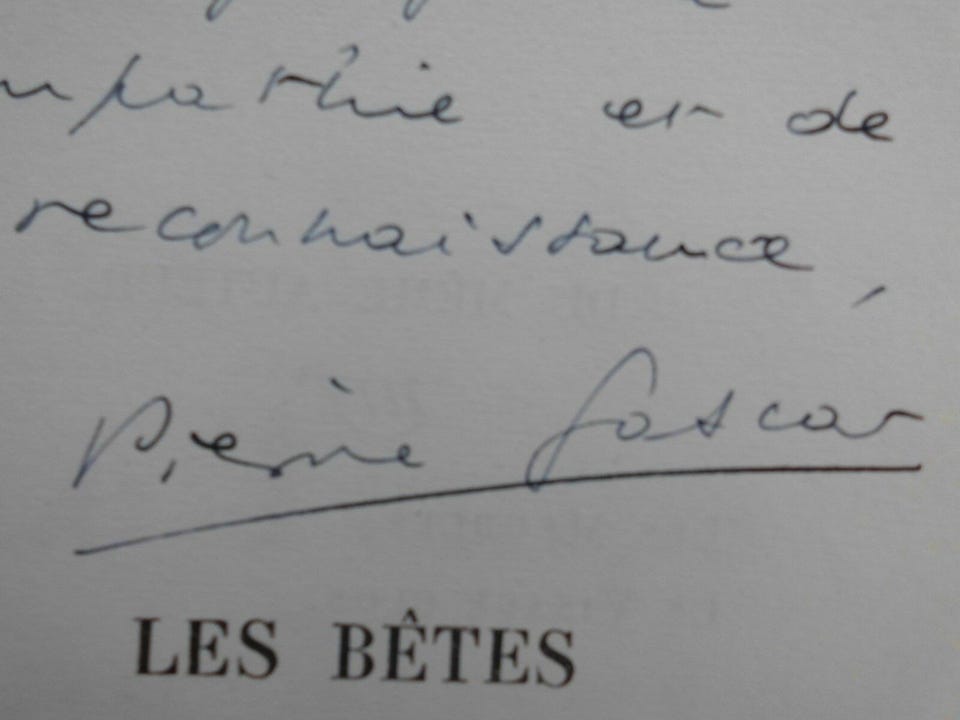 mpathie et de
reconnaissance,
Pierre Gascar
LES BÊTES